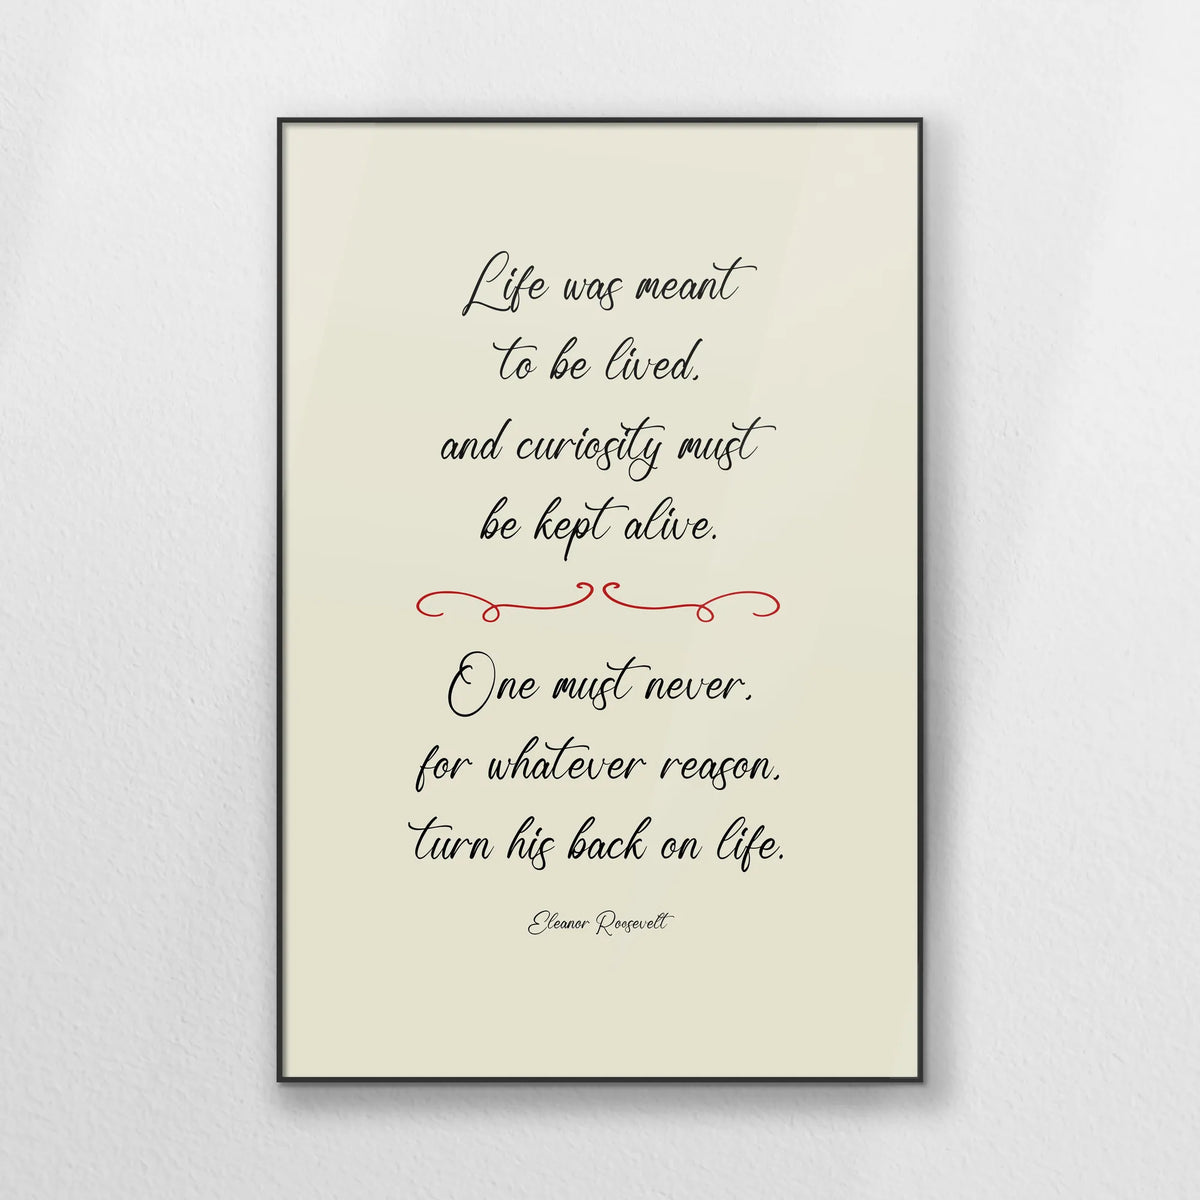 Life was meant
to be lived,
and curiosity must
be kept alive.
One must never,
for whatever reason,
turn his back on life.
Eleanor Roosevelt